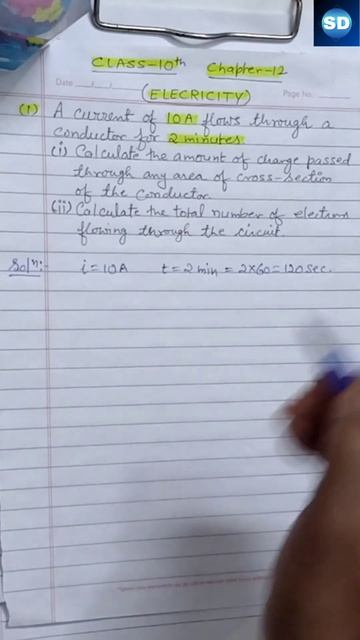 SD
CLASS-10th Chapter-12
Date __/__/__ (ELECRICITY) Page No.
(1) A current of 10A flows through a
conductor for 2 minutes
(i) Calculate the amount of charge passed
through any area of cross-section
of the conductor
(ii) Calculate the total number of electrons
flowing through the circuit.
Solⁿ:- i = 10A t = 2 min = 2×60 = 120 sec.